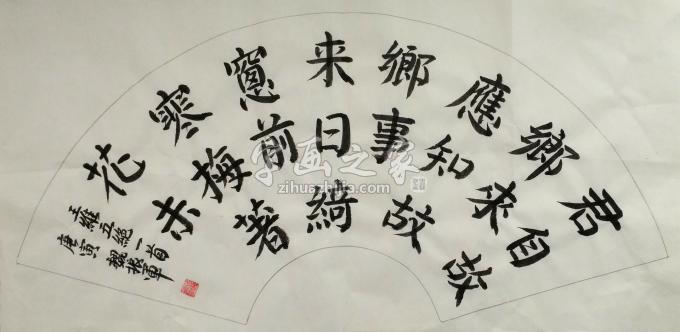 君自故
鄉来
應知故
鄉事
来日綺
窻前
寒梅著
花未
王維五絕一首
庚寅 魏振軍
字画之家
zihuazhijia.com